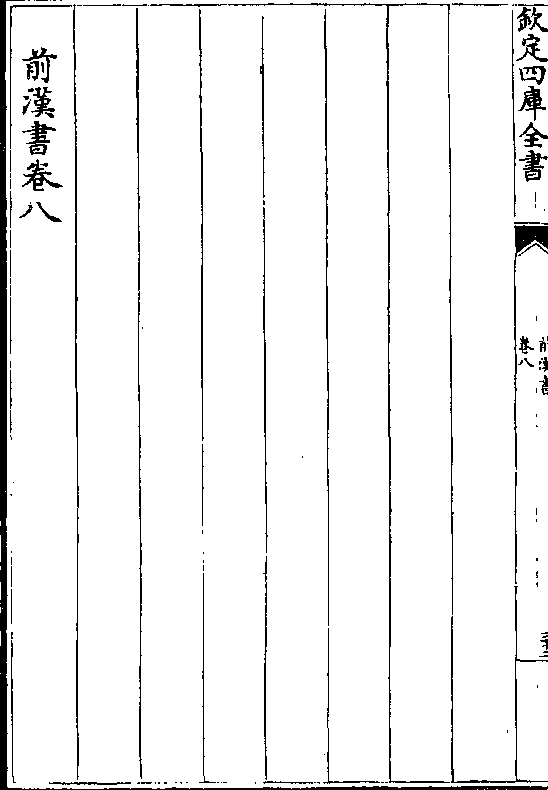 欽定四庫全書
前漢書
卷八
前漢書卷八